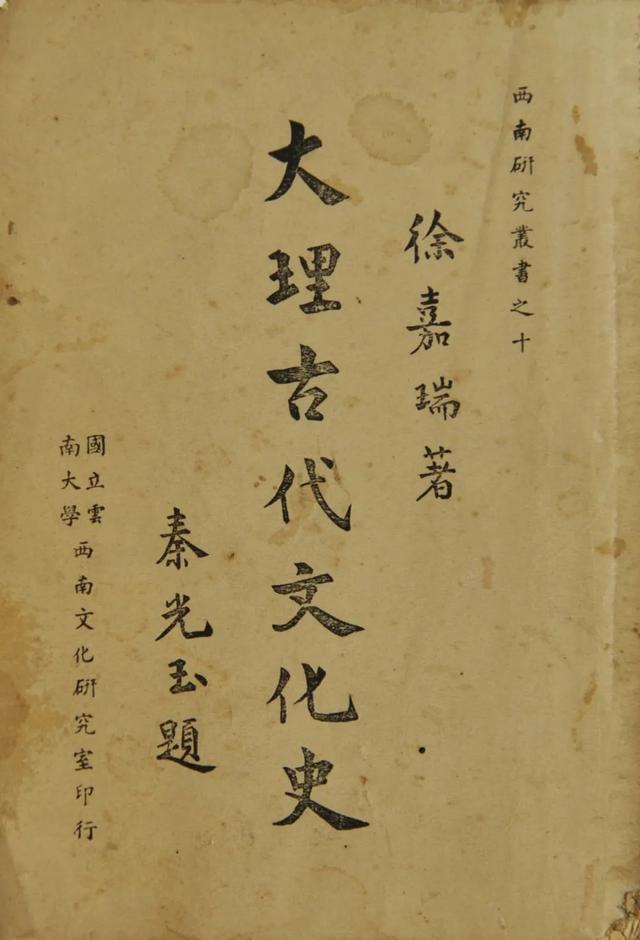 西南研究叢書之十
徐嘉瑞著
大理古代文化史
秦光玉題
國立雲
南大學
西南文化研究室印行